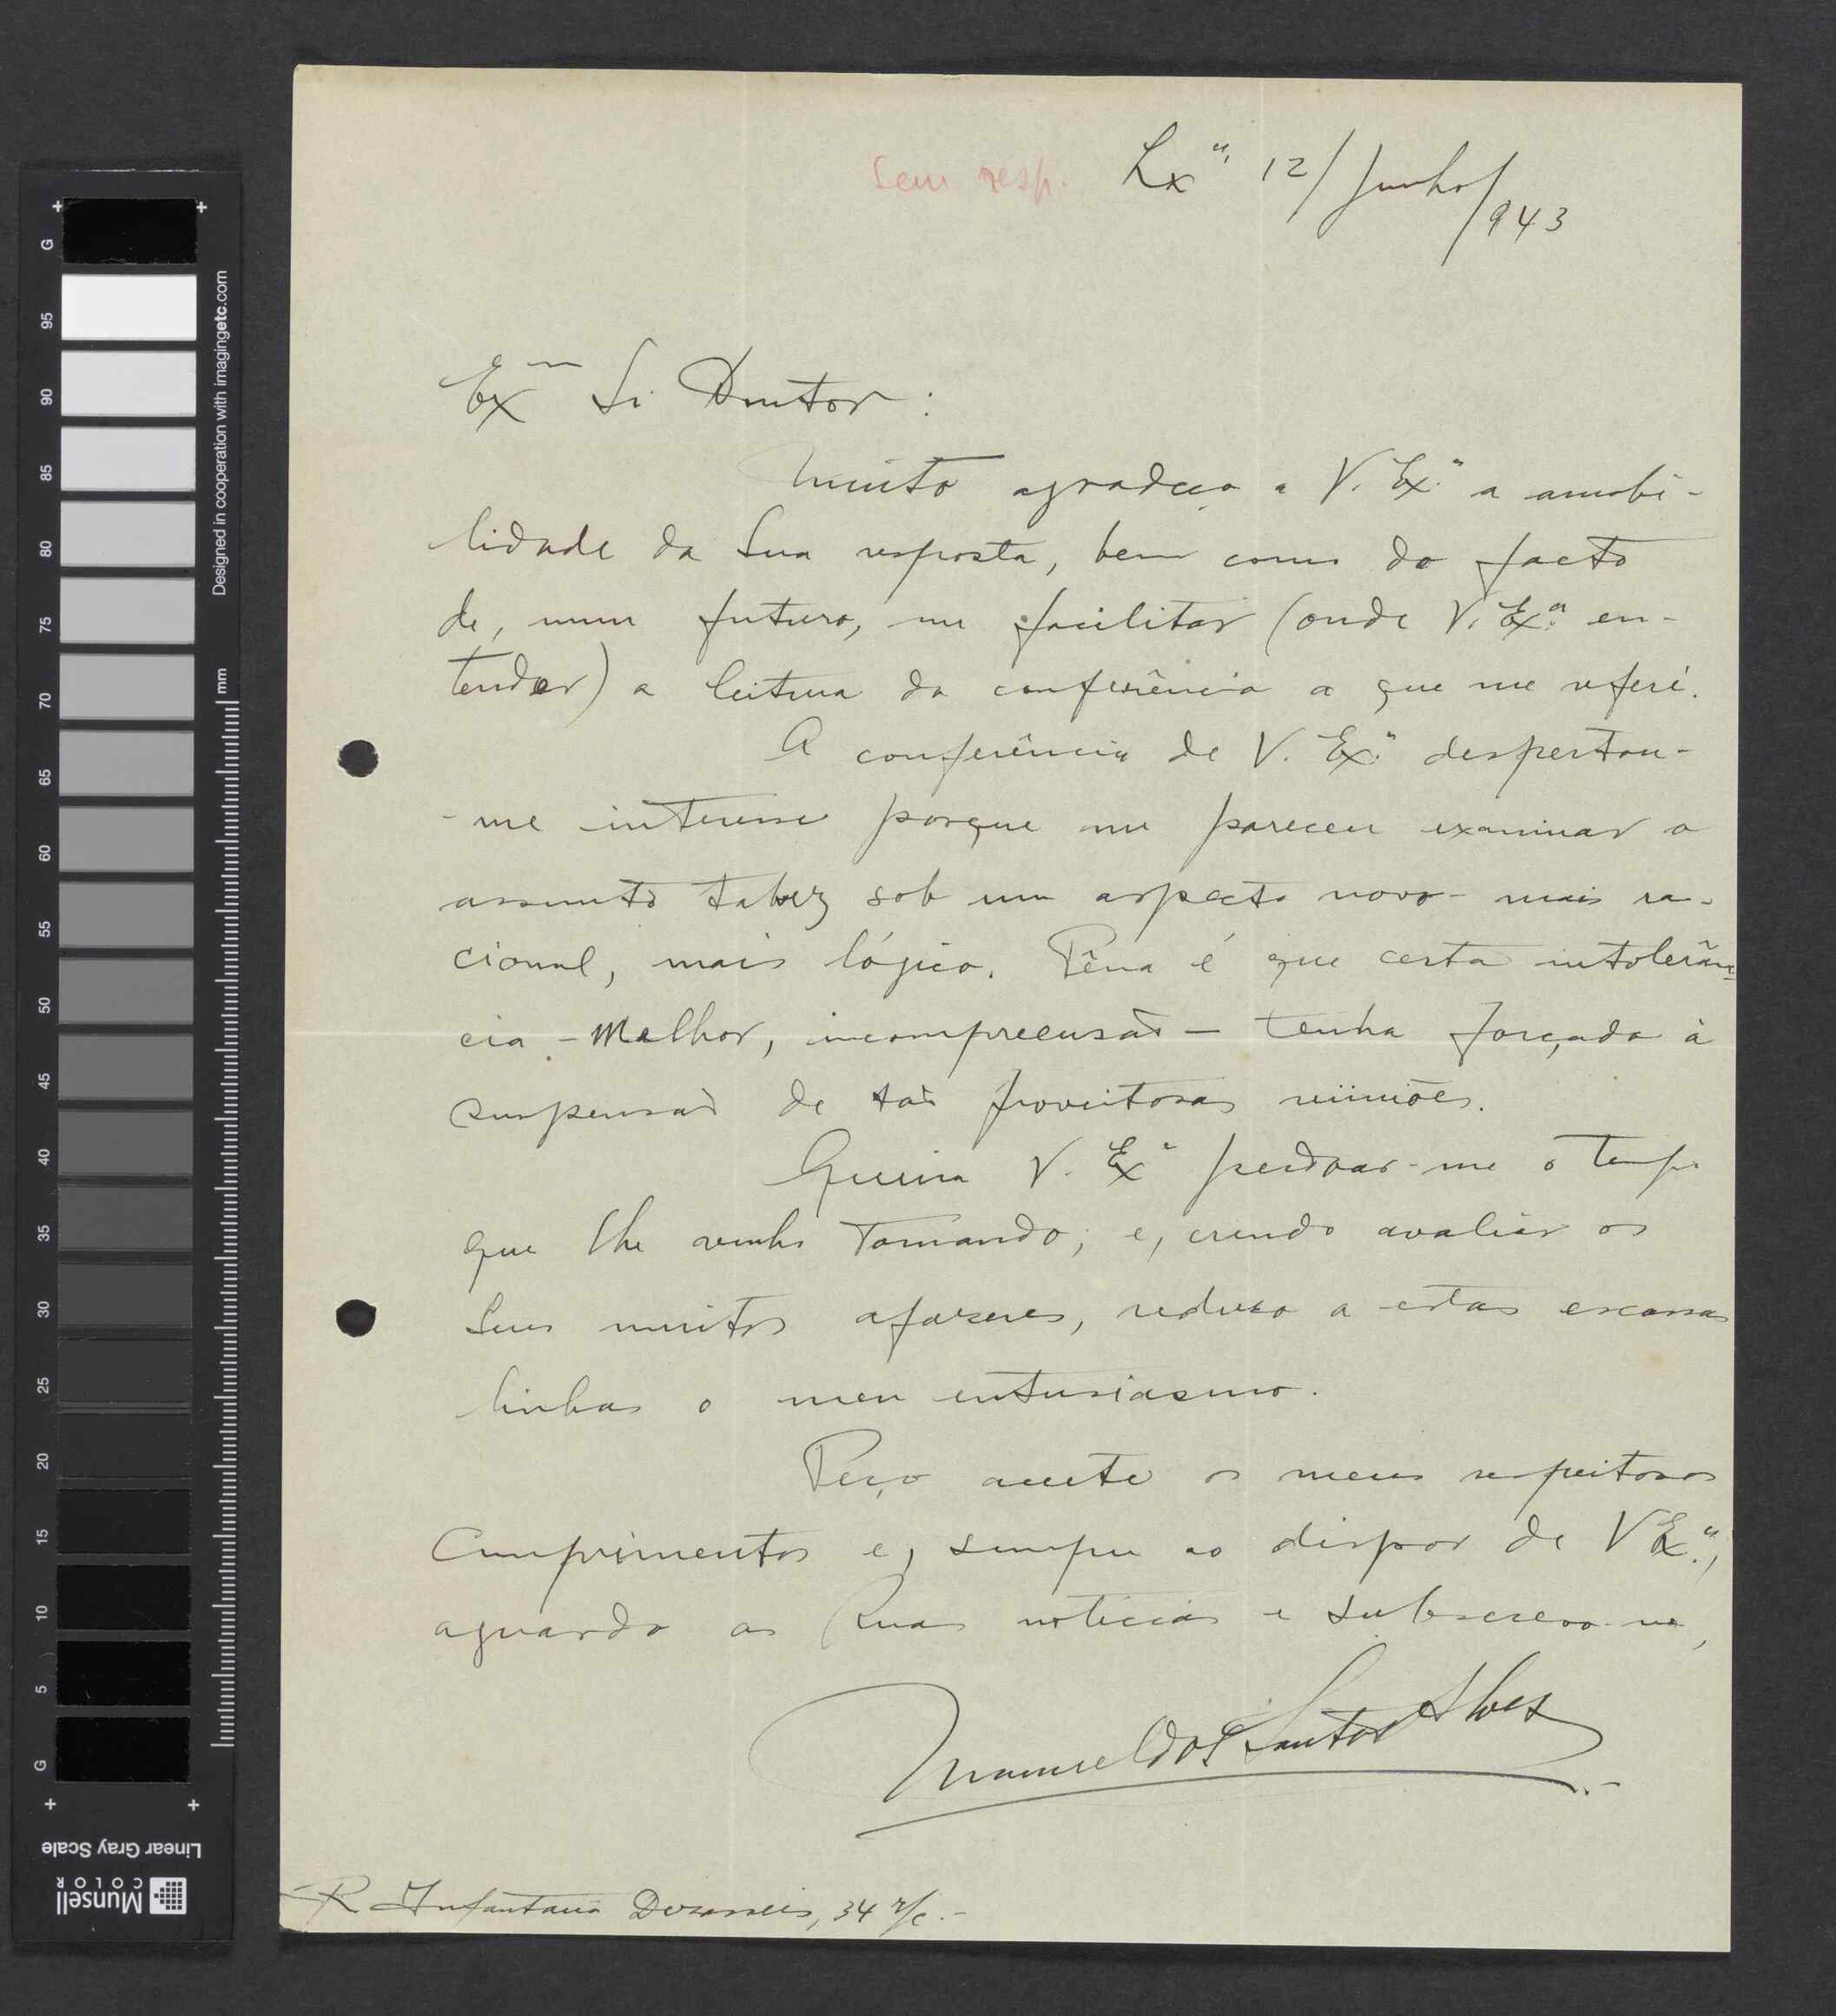 Sem resp. Lxª, 12/Junho/943
Exmo Sr Doutor:
Muito agradeço a V. Exª a amabi-
lidade da Sua resposta, bem como do facto
de, num futuro, me facilitar (onde V. Ex.ª en-
tender) a leitura da conferência a que me referi.
A conferência de V. Ex.ª despertou-
-me interesse porque me pareceu examinar o
assunto talvez sob um aspecto novo - mais ra-
cional, mais lógico. Pêna é que certa intolerân-
cia - Melhor, incompreensão - tenha forçado à
suspensão de tão proveitosas reüniões.
Queira V. Exª perdoar-me o tempo
que lhe venho tomando; e, crendo avaliar os
Seus muitos afazeres, reduzo a estas escassas
linhas o meu entusiasmo.
Peço aceite os meus respeitosos
Cumprimentos e, sempre ao dispor de V Ex.ª,
aguardo as Suas notícias e subscrevo-me,
Manuel dos Santos Alves
R Infantaria Dezasseis, 34 r/c.-
G 95 90 85 80 75 70 65 60 55 50 45 40 35 30 25 20 15 10 5 G
mm
Designed in cooperation with imagingetc.com
Linear Gray Scale
Munsell
COLOR